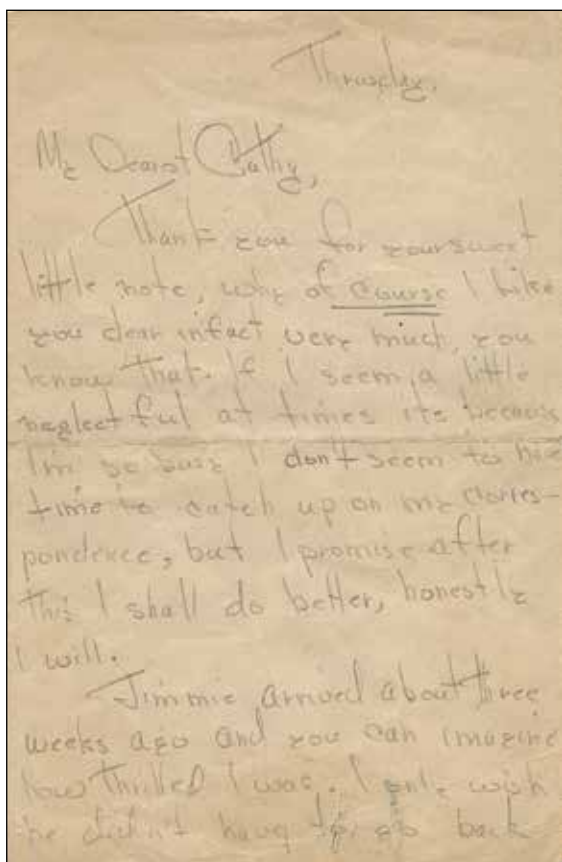 Thursday,
My Dearest Cathy,
Thank you for your sweet
little note, why of course I like
you dear infact very much, you
know that. If I seem a little
neglectful at times its because
I'm so busy I don't seem to have
time to catch up on my corres-
pondence, but I promise after
this I shall do better, honestly
I will.
Jimmie arrived about three
weeks ago and you can imagine
how thrilled I was. I only wish
he didn't have to go back